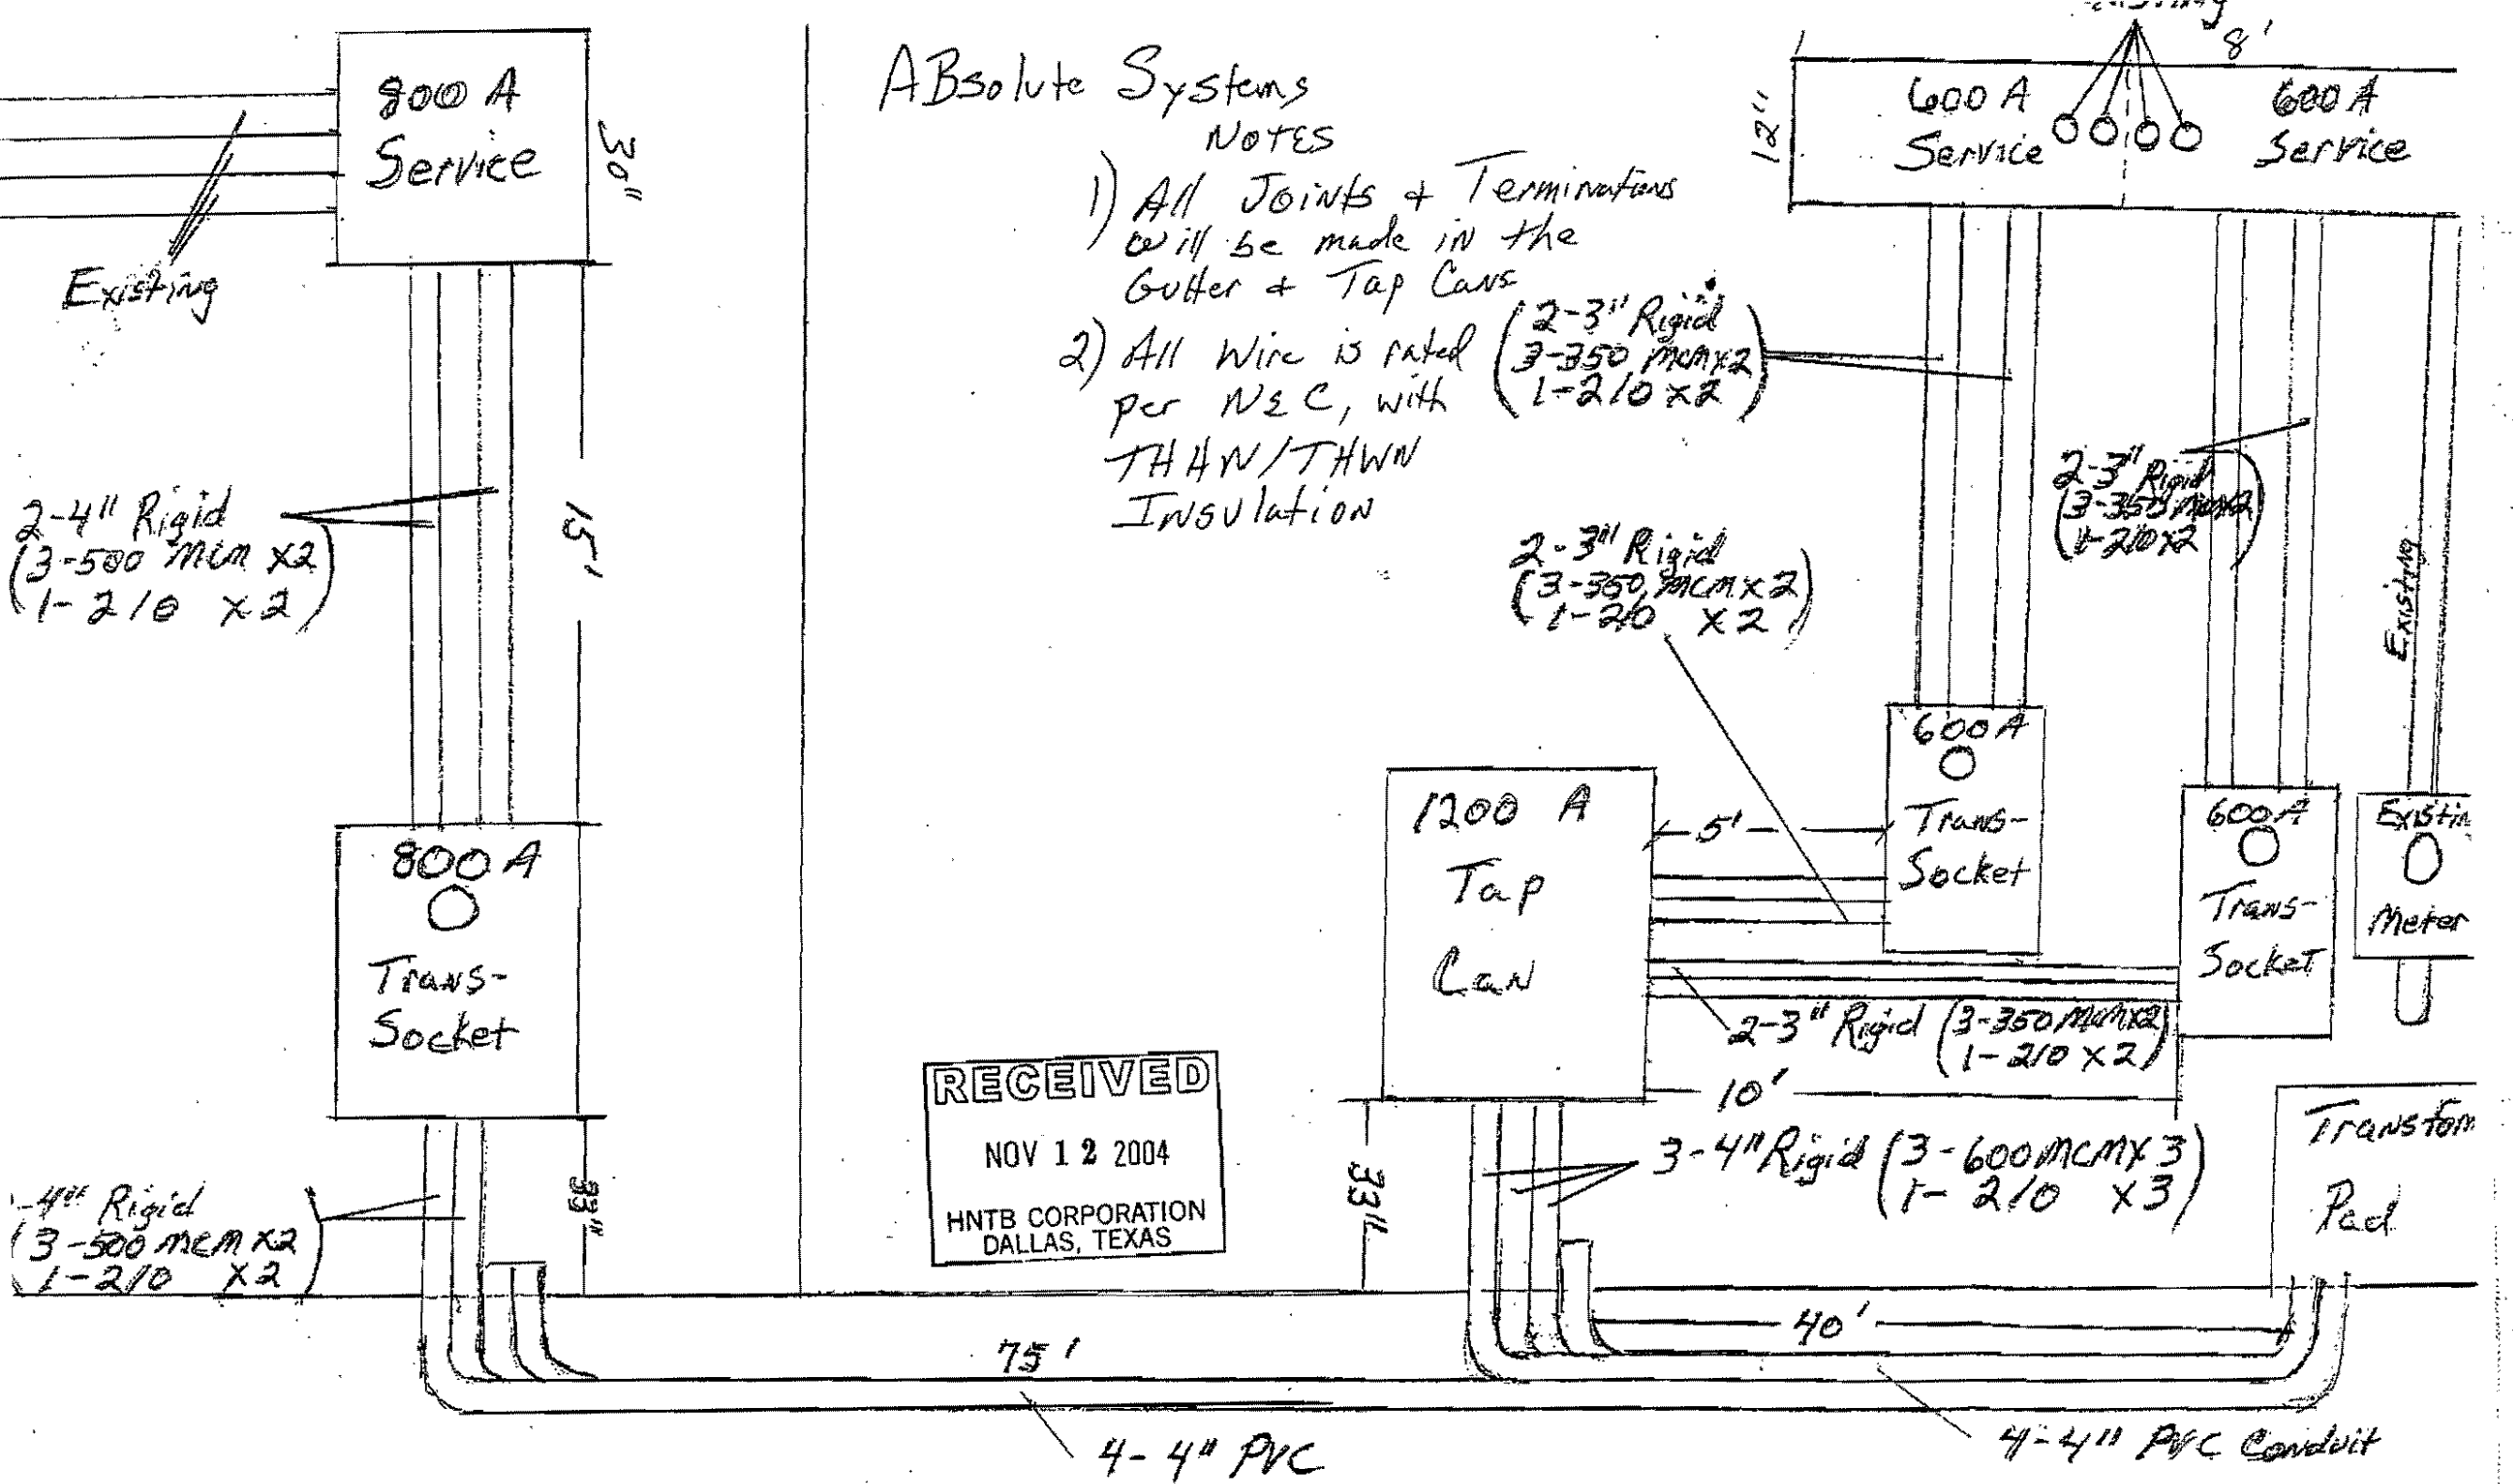 800 A
Service
30"
Existing
2-4" Rigid
(3-500 mcm x2)
1-2/0 x2
15'
800 A
Trans-
Socket
-4" Rigid
(3-500 mcm x2)
1-2/0 x2
33"
ABsolute Systems
NOTES
1) All Joints & Terminations
will be made in the
Gutter & Tap Cans
2) All Wire is rated
per NEC, with
THHN/THWN
Insulation
2-3" Rigid
(3-350 mcm x2)
1-2/0 x2
8'
12"
600 A
Service
600 A
Service
2-3" Rigid
(3-350 mcm x2)
1-2/0 x2
Existing
2-3" Rigid
(3-350 mcm x2)
1-2/0 x2
600 A
Trans-
Socket
1200 A
Tap
Can
5'
600 A
Trans-
Socket
Existin
Meter
2-3" Rigid (3-350 mcm x2)
1-2/0 x2
10'
RECEIVED
NOV 12 2004
HNTB CORPORATION
DALLAS, TEXAS
33"
3-4" Rigid (3-600 mcm x 3)
1-2/0 x3
Transfom
Pad
40'
75'
4-4" PVC
4-4" PVC Conduit